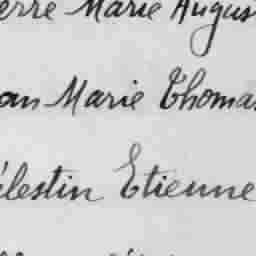 erre Marie Augus
an Marie Thomas
élestin Etienne